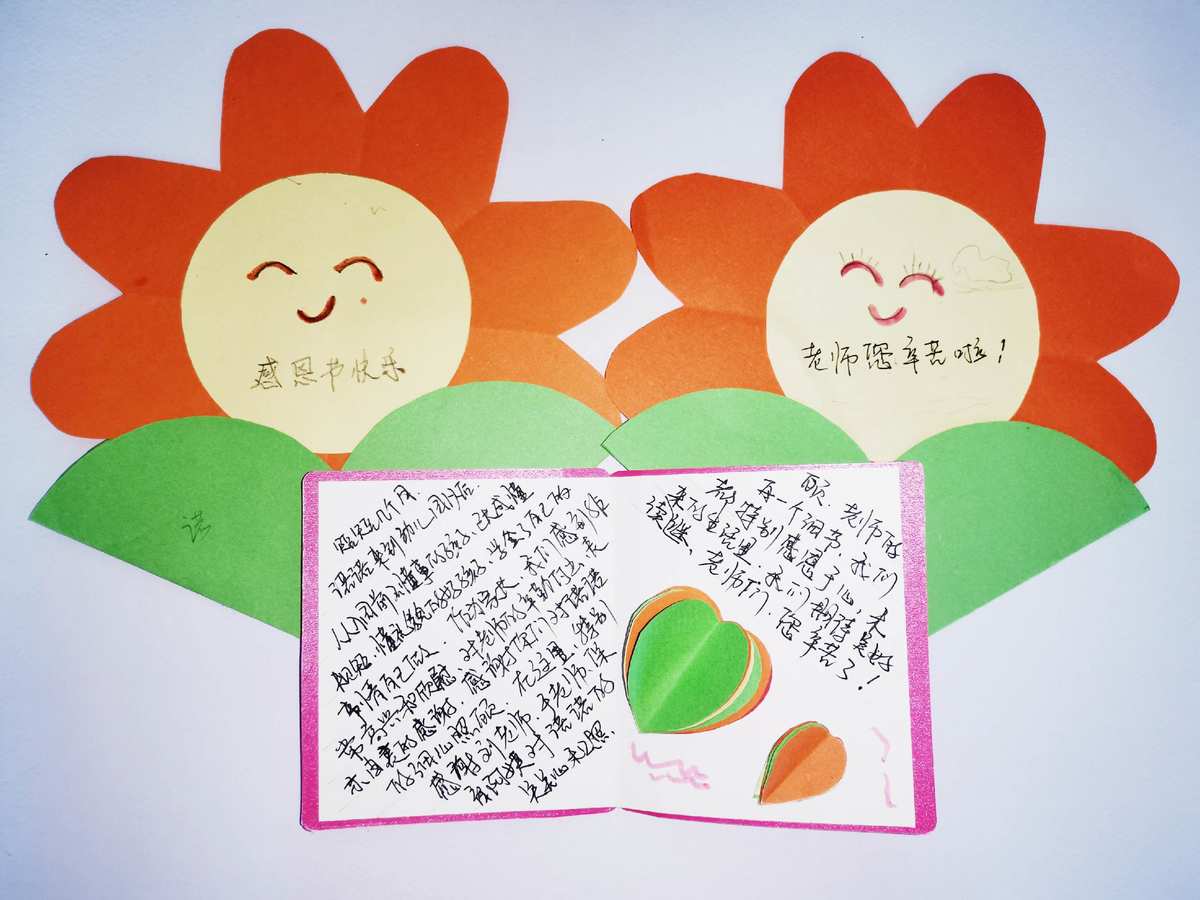 感恩节快乐
老师您辛苦啦！
诺
短短几个月
诺诺来到幼儿园以后.
从以前不懂事的孩子, 变成懂
规矩、懂礼貌的好孩子, 学会了自己的
事情自己做, 作为家长, 我们感到非
常高兴和欣慰, 对老师的辛勤付出表
示由衷的感谢, 感谢老师们对诺诺
的细心照顾, 在这里, 特别
感谢刘老师、于老师、保
育阿姨对诺诺的
关心
顾. 老师的
每一个细节, 我们
都特别感恩于心, 未
来的生活里, 我们期待更好
老师们, 您辛苦了！